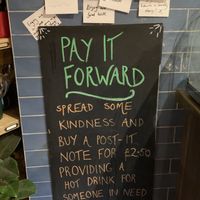 PAY IT
FORWARD
SPREAD SOME
KINDNESS AND
BUY A POST-IT
NOTE FOR £2.50
PROVIDING A
HOT DRINK FOR
SOMEONE IN NEED